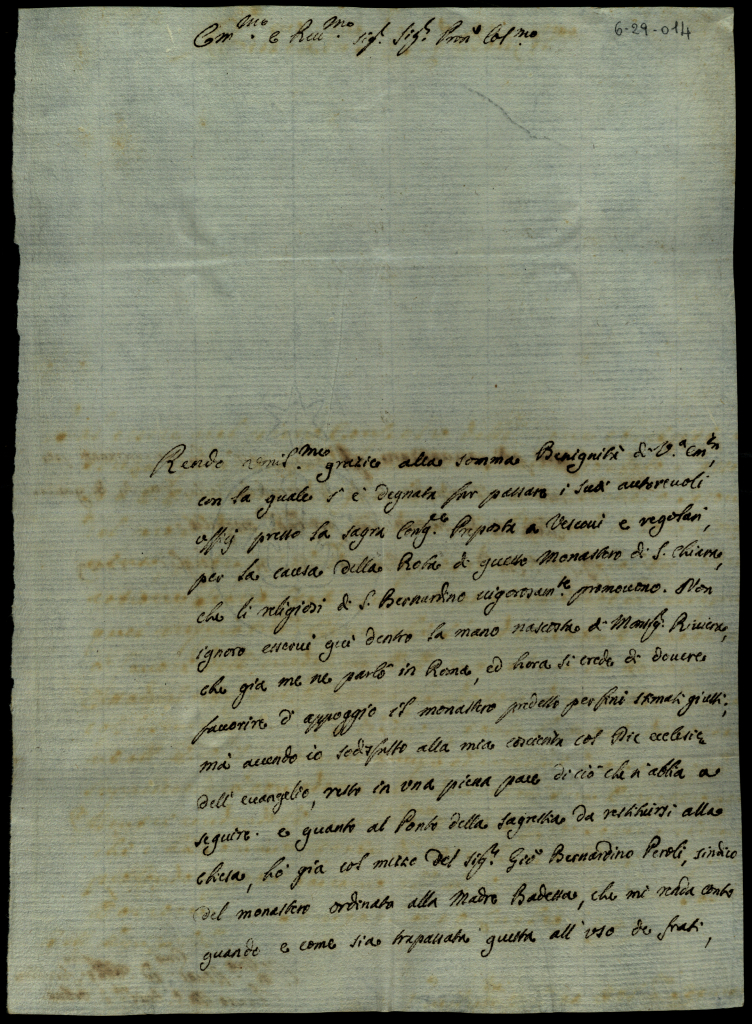 6-29-014
Em.mo e Reu.mo Sig.r Sig.r Pron Col.mo
Rendo umilis.me grazie alla somma Benignità di V.a Em.a,
con la quale s'è degnata far passare i suoi autoreuoli
uffizij presso la sagra Cong.ne Preposta a Vescoui e regolari,
per la causa della Rota di questo Monastero di S. Chiara,
che li religiosi di S. Bernardino uigorosam.te promouono. Non
ignoro esserui quì dentro la mano nascosta di Monsig.r Riuiera,
che già me ne parlò in Roma, ed hora si crede di douere
fauorire d'appoggio il monastero predetto per fini stimati giusti;
mà auendo io sodisfatto alla mia coscienza col Dic ecclesiæ
dell'euangelio, resto in una piena pace di ciò che n'abbia a
seguire. e quanto al Ponto della sagrestia da restituirsi alla
chiesa, hò già col mezzo del sig.r Giõ Bernardino Peroli, sindico
del monastero ordinato alla Madre Badessa, che mi renda conto
quando e come sia trapassata questa all'uso de frati,